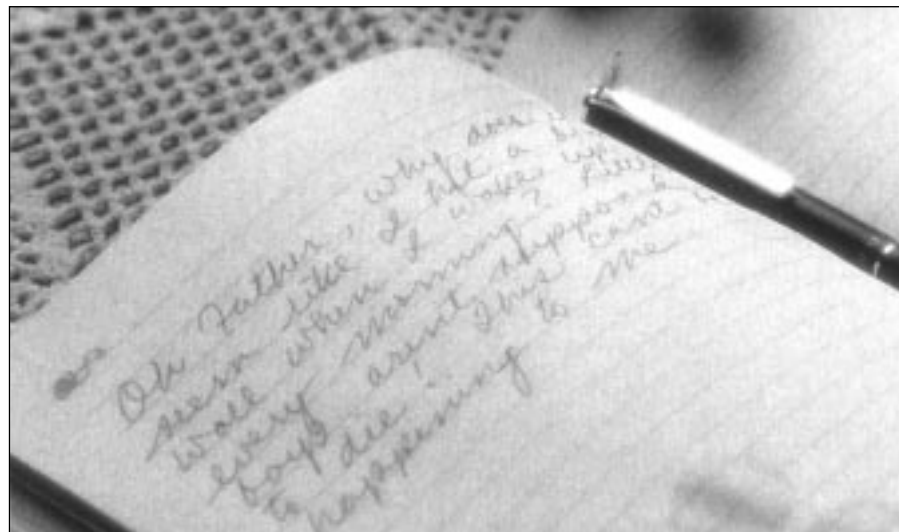 Oh Father, why does
seem like I hit a
wall when I wake up
every morning? Little
boys arent suppose
to die. This cant
happening to me